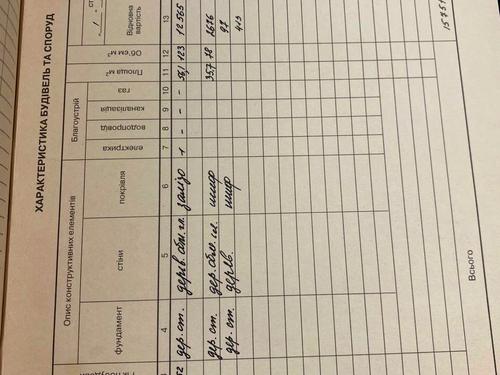 ХАРАКТЕРИСТИКА БУДІВЕЛЬ ТА СПОРУД
Опис конструктивних елементів
Благоустрій
фундамент
стіни
покрівля
електрика
водопровід
каналізація
газ
Площа м²
Об'єм м³
Відновна вартість
4 5 6 7 8 9 10 11 12 13
52 дер. ст. дерев. обл. гл. залізо + - - - 123 12565
дер. ст. дер. обл. гл. шифер 35,7 78
дер. ст. дерев. шифер 97
413
Всього